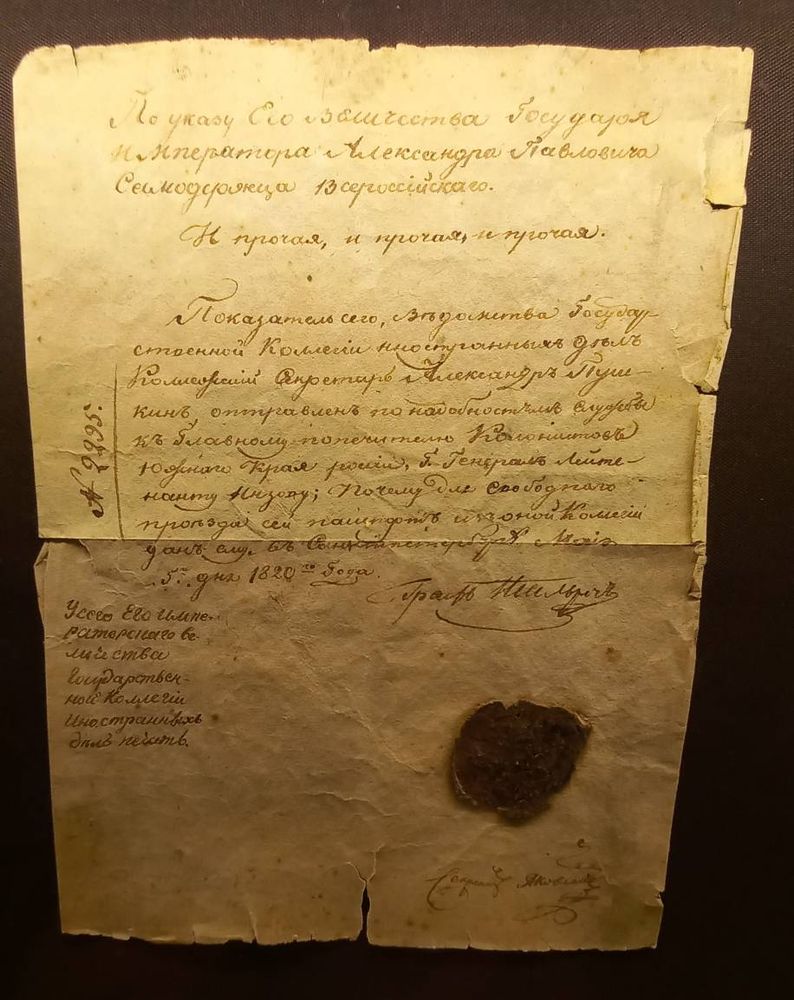 По указу Его Величества Государя
Императора Александра Павловича
Самодержца Всероссійскаго.
И прочая, и прочая, и прочая.
Показатель сего, Вѣдомства Государ-
ственной Коллегіи иностранныхъ дѣлъ
Коллежскій Секретарь Александръ Пуш-
кинъ, отправленъ по надобностямъ службы
къ Главному попечителю Колонистовъ
Южнаго Края россіи, Г. Генералъ Лейте-
нанту Инзову; Почему для свободнаго
проѣзда сей пашпортъ изъ оной Коллегіи
данъ ему въ Санктпетербургѣ Маія
5го дня 1820го Года.
№ 2295.
У сего Его Импе-
раторскаго ве-
личества
Государствен-
ной Коллегіи
Иностранныхъ
дѣлъ печать.
Секретарь Яковлевъ